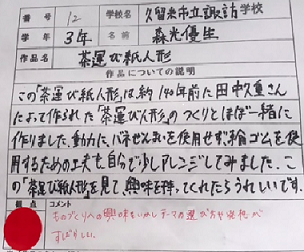 番号 12 学校名 久留米市立諏訪学校
学年 3年 名前 森光優生
作品名 茶運び紙人形
作品についての説明
この「茶運び紙人形」は約190年前に田中久重さん
によって作られた「茶運び人形」のつくりとほぼ一緒に
作りました。動力に、バネぜんまいを使用せず、輪ゴムを使
用するための工夫を自分で少しアレンジしてみました。こ
の「茶運び紙人形」を見て、興味を持ってくれたらうれしいです。
観点 コメント
ものづくりへの興味をいかしテーマの選び方や発想が
すばらしい